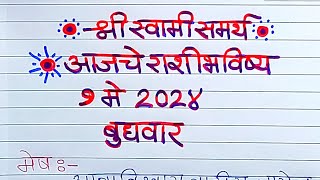 -श्री स्वामी समर्थ
आजचे राशीभविष्य
१ मे 2024
बुधवार
मेष :-